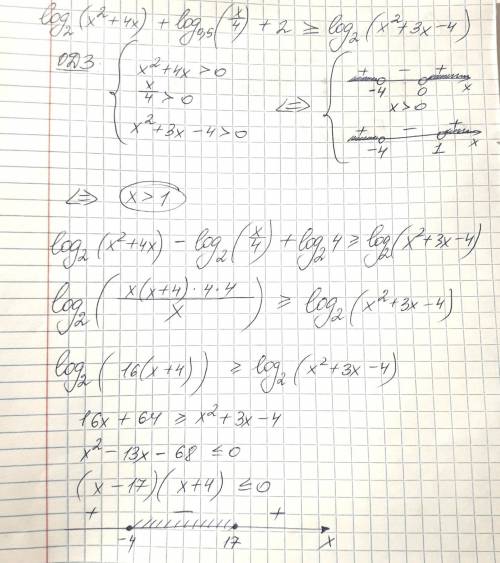 log₂(x²+4x) + log₀,₅(x/4) + 2 ≥ log₂(x²+3x-4)
ОДЗ { x²+4x>0 ⇔ { + -4 - 0 + x
x/4 >0 x>0
x²+3x-4>0 + -4 - 1 + x
⇔ x>1
log₂(x²+4x) - log₂(x/4) + log₂4 ≥ log₂(x²+3x-4)
log₂(x(x+4)·4·4/x) ≥ log₂(x²+3x-4)
log₂(16(x+4)) ≥ log₂(x²+3x-4)
16x+64 ≥ x²+3x-4
x²-13x-68 ≤0
(x-17)(x+4) ≤0
+ - +
-4 17 x